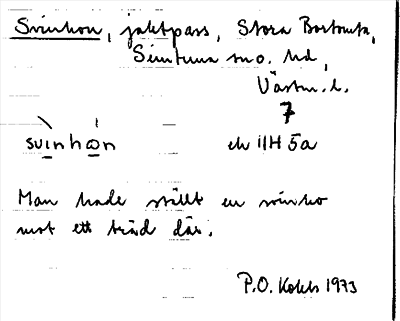 Svinhon, jaktpass, Stora
Simtuna sn o. hd,
Västm. l.
7
svinhon ek 11H 5a
Man hade ställt en svinho
mot ett träd där.
P.O. Kohls 1973